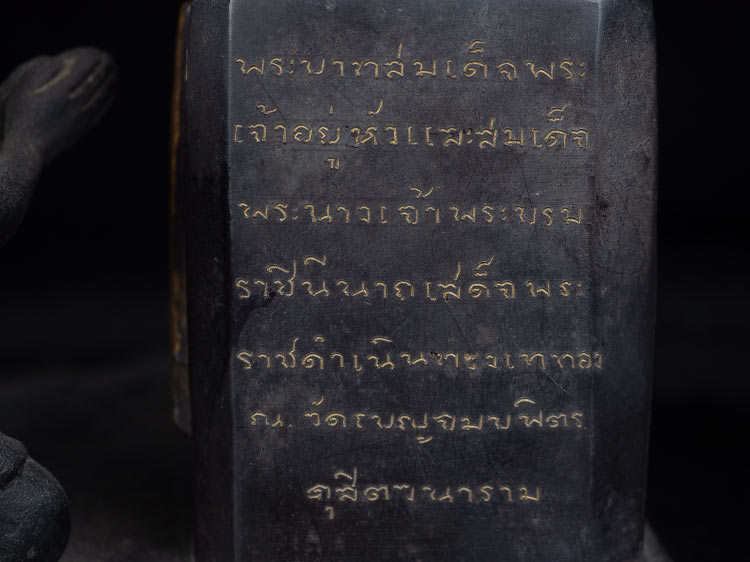 พระบาทสมเด็จพระ
เจ้าอยู่หัวและสมเด็จ
พระนางเจ้าพระบรม
ราชินีนาถเสด็จพระ
ราชดำเนินทรงเททอง
ณ. วัดเบญจมบพิตร
ดุสิตวนาราม